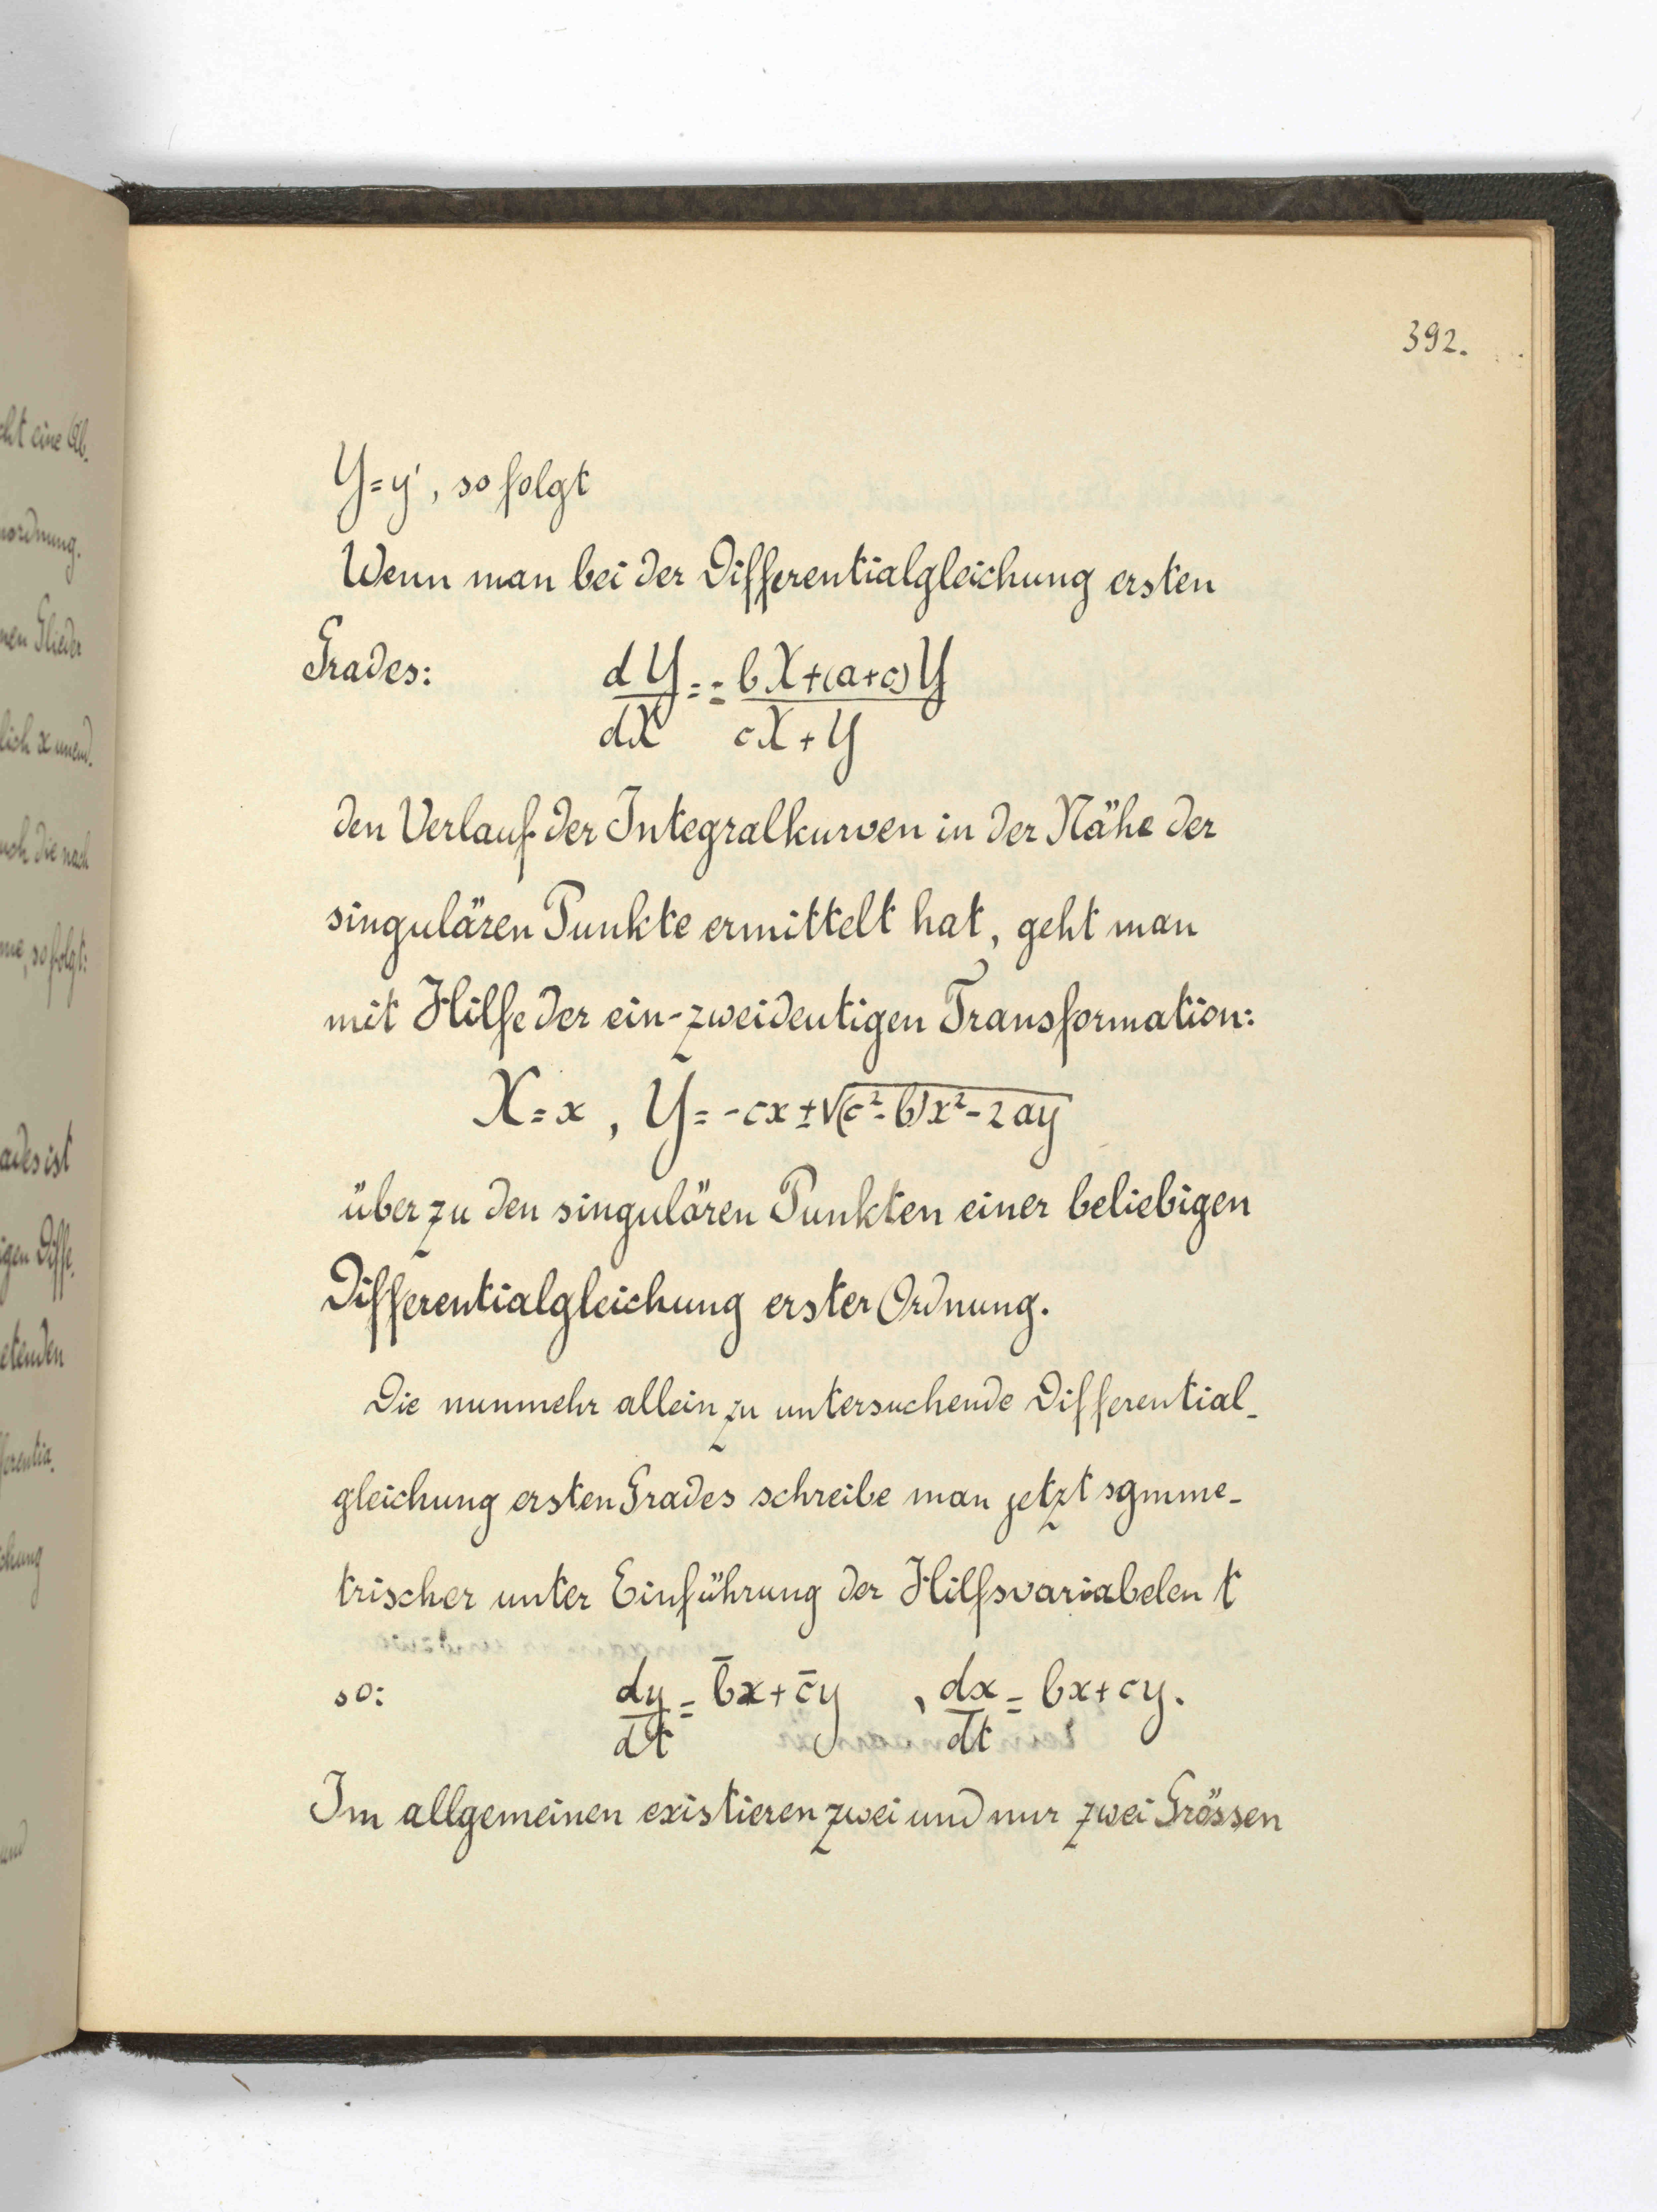 392.
Y=y', so folgt
Wenn man bei der Differentialgleichung ersten
Grades: dY/dX = - (bX+(a+c)Y)/(cX+Y)
den Verlauf der Integralkurven in der Nähe der
singulären Punkte ermittelt hat, geht man
mit Hilfe der ein-zweideutigen Transformation:
X=x, Y=-cx±√((c²-b)x²-2ay)
über zu den singulären Punkten einer beliebigen
Differentialgleichung erster Ordnung.
Die nunmehr allein zu untersuchende Differential-
gleichung ersten Grades schreibe man jetzt symme-
trischer unter Einführung der Hilfsvariabelen t
so: dy/dt = b̄x+c̄y, dx/dt = bx+cy.
Im allgemeinen existieren zwei und nur zwei Grössen